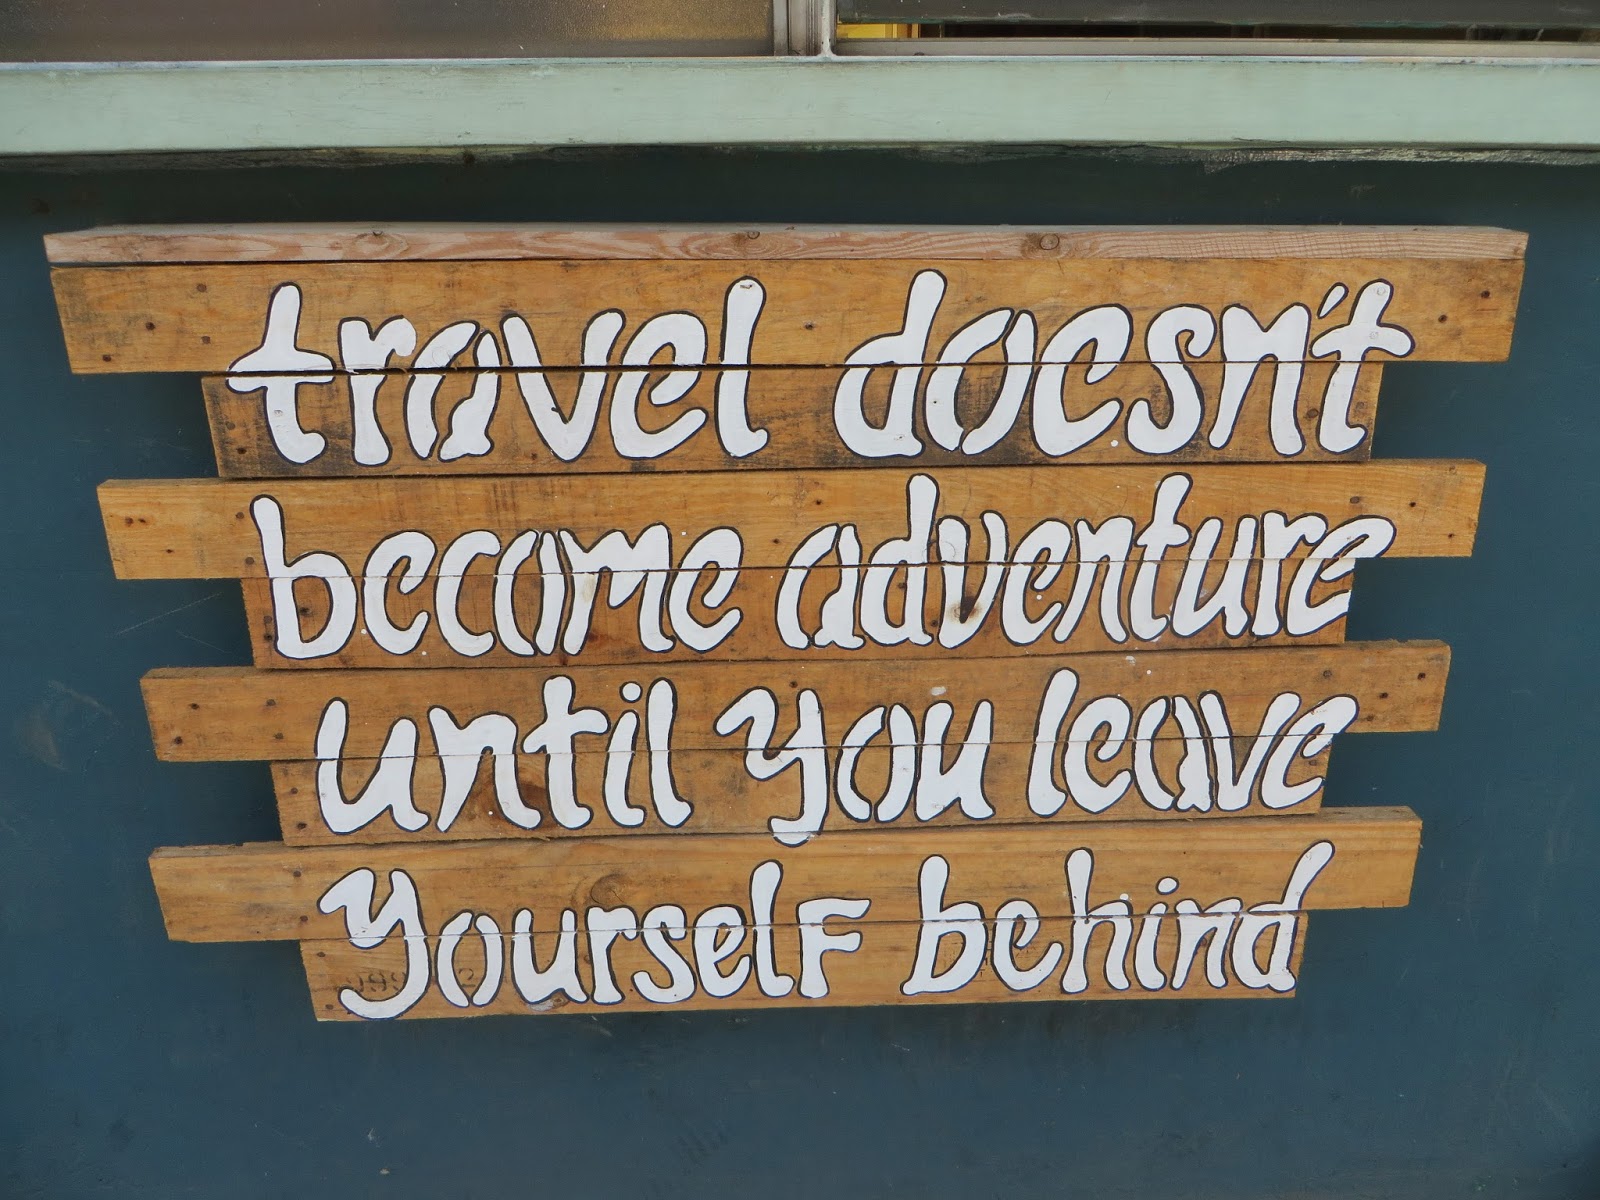 travel doesn't
become adventure
until you leave
yourself behind